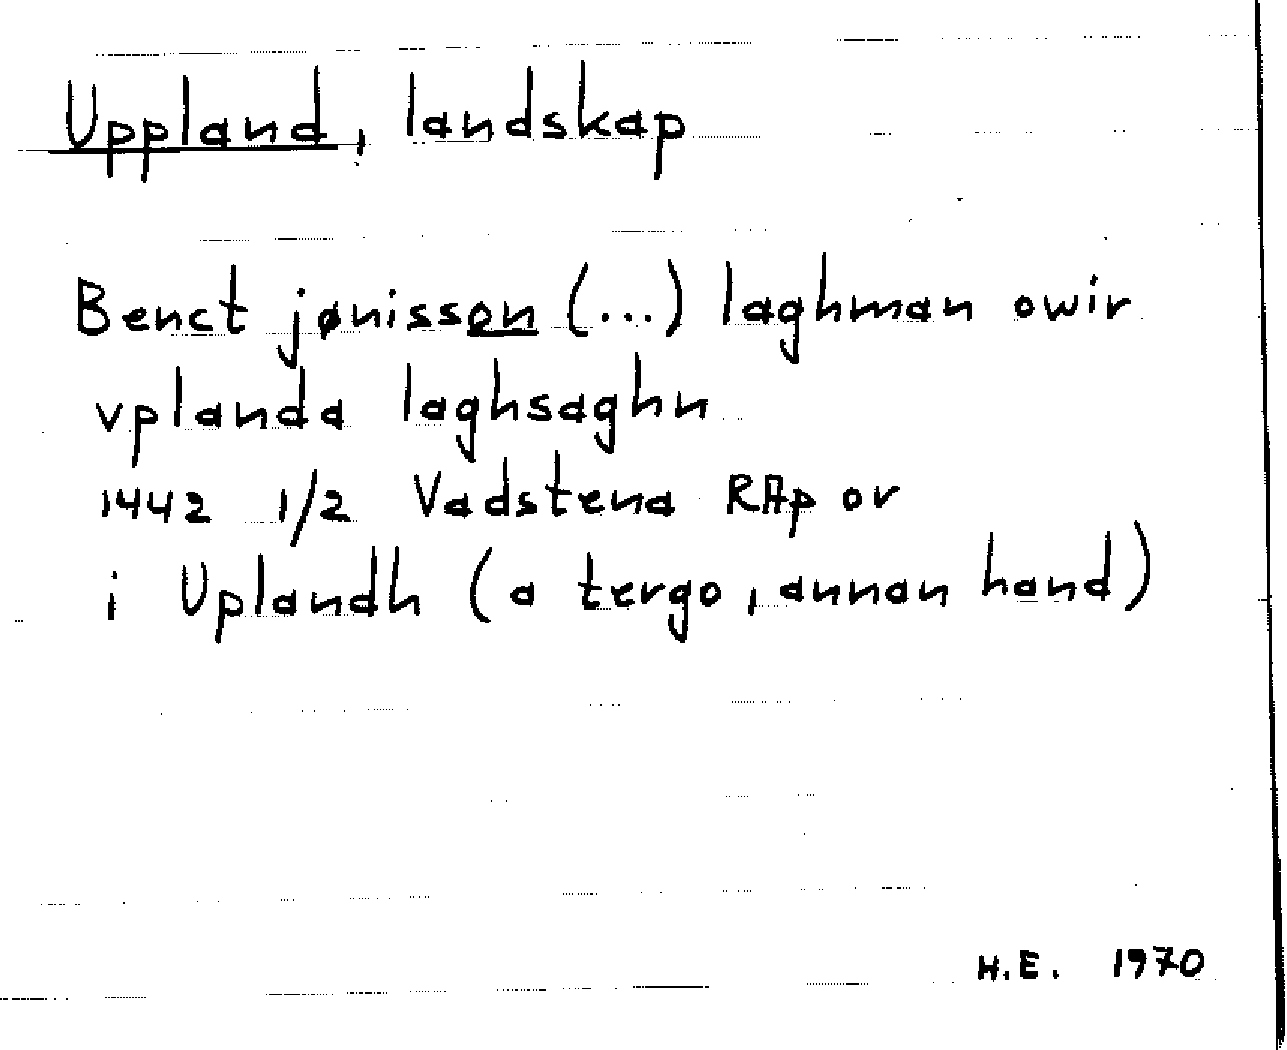 Uppland, landskap
Benct jønisson (...) laghman owir
vplanda laghsaghn
1442 1/2 Vadstena RAp or
i Uplandh (a tergo, annan hand)
H.E. 1970